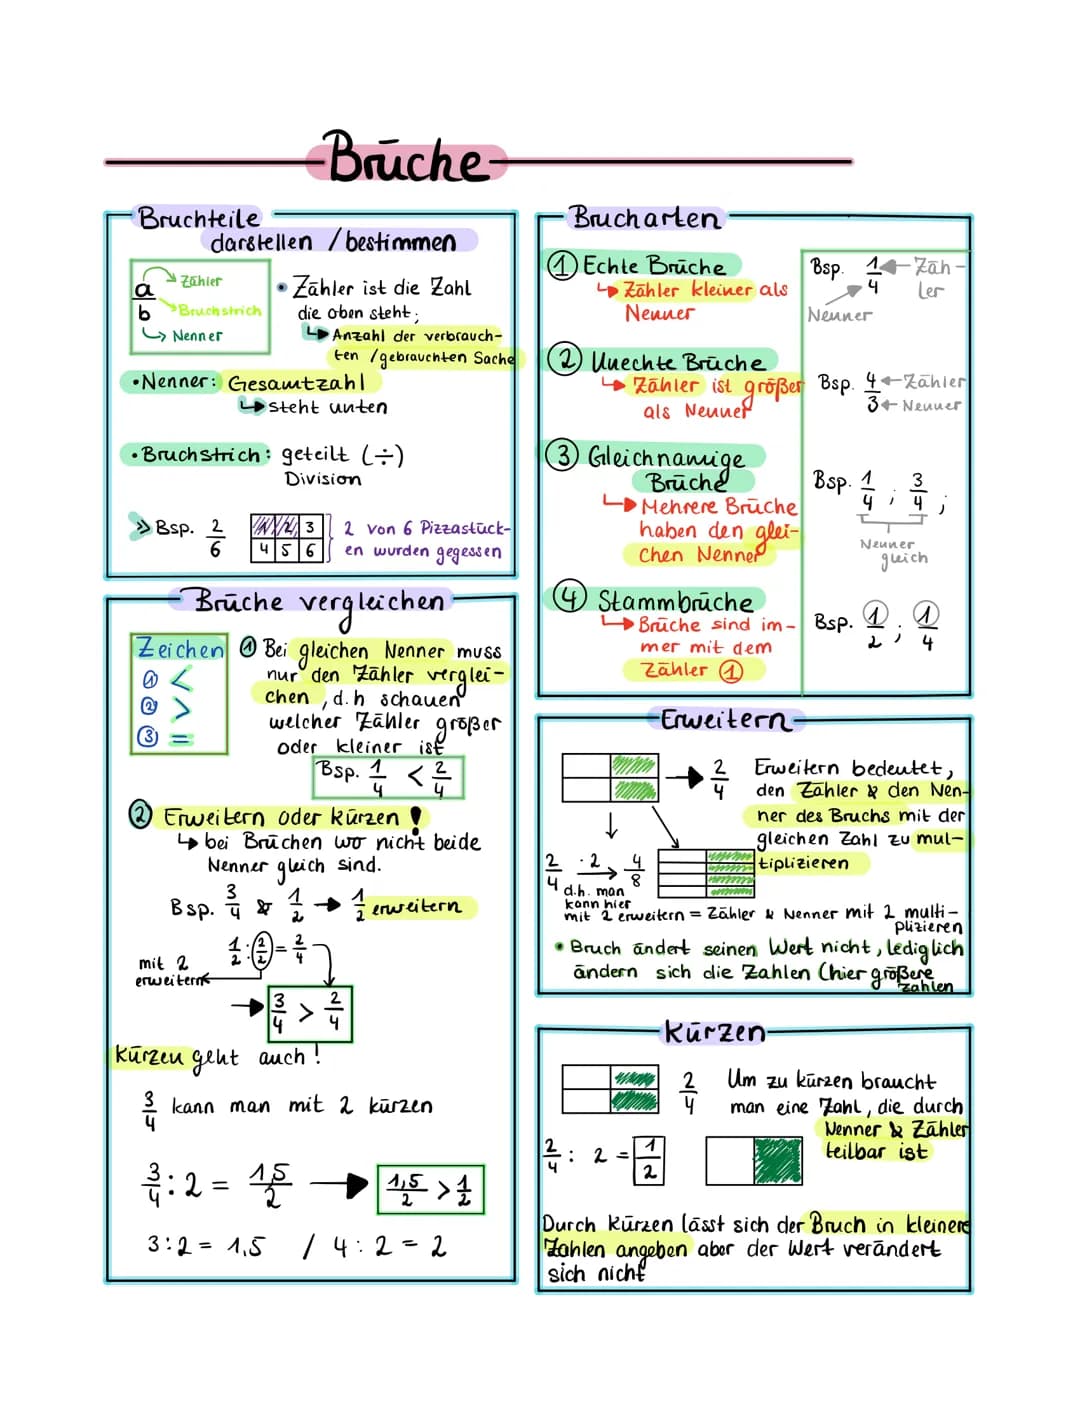 Brüche
Bruchteile
darstellen / bestimmen
a
b
Zähler
Bruchstrich
Nenner
• Zähler ist die Zahl
die oben steht;
↳ Anzahl der verbrauch-
ten / gebrauchten Sache
• Nenner: Gesamtzahl
↳ steht unten
• Bruchstrich: geteilt (÷)
Division
» Bsp. 2/6
1 2 3
4 5 6
2 von 6 Pizzastück-
en wurden gegessen
Brucharten
① Echte Brüche
↳ Zähler kleiner als
Nenner
Bsp. 1/4 ← Zäh-
ler
Nenner
② Unechte Brüche
↳ Zähler ist größer
als Nenner
Bsp. 4/3
← Zähler
← Nenner
③ Gleichnamige
Brüche
↳ Mehrere Brüche
haben den glei-
chen Nenner
Bsp. 1/4 ; 3/4 ;
Nenner
gleich
④ Stammbrüche
↳ Brüche sind im-
mer mit dem
Zähler ①
Bsp. 1/2 ; 1/4
Brüche vergleichen
Zeichen
① <
② >
③ =
① Bei gleichen Nenner muss
nur den Zähler verglei-
chen, d.h schauen
welcher Zähler größer
oder kleiner ist
Bsp. 1/4 < 2/4
② Erweitern oder kürzen !
↳ bei Brüchen wo nicht beide
Nenner gleich sind.
Bsp. 3/4 & 1/2 → 1/2 erweitern
1/2 : (2/2) = 2/4
mit 2
erweitern
→ 3/4 > 2/4
Kürzen geht auch !
3/4 kann man mit 2 kürzen
3/4 : 2 = 1,5/2 → 1,5/2 > 1/2
3 : 2 = 1,5 / 4 : 2 = 2
Erweitern
→ 2/4
Erweitern bedeutet,
den Zähler & den Nen-
ner des Bruchs mit der
gleichen Zahl zu mul-
tiplizieren
2/4 · 2 → 4/8
d.h. man
kann hier
mit 2 erweitern = Zähler & Nenner mit 2 multi-
plizieren
• Bruch ändert seinen Wert nicht, lediglich
ändern sich die Zahlen (hier größere
Zahlen
Kürzen
2/4
Um zu kürzen braucht
man eine Zahl, die durch
Nenner & Zähler
teilbar ist
2/4 : 2 = 1/2
Durch Kürzen lässt sich der Bruch in kleinere
Zahlen angeben aber der Wert verändert
sich nicht